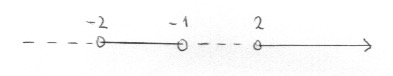 -2 -1 2